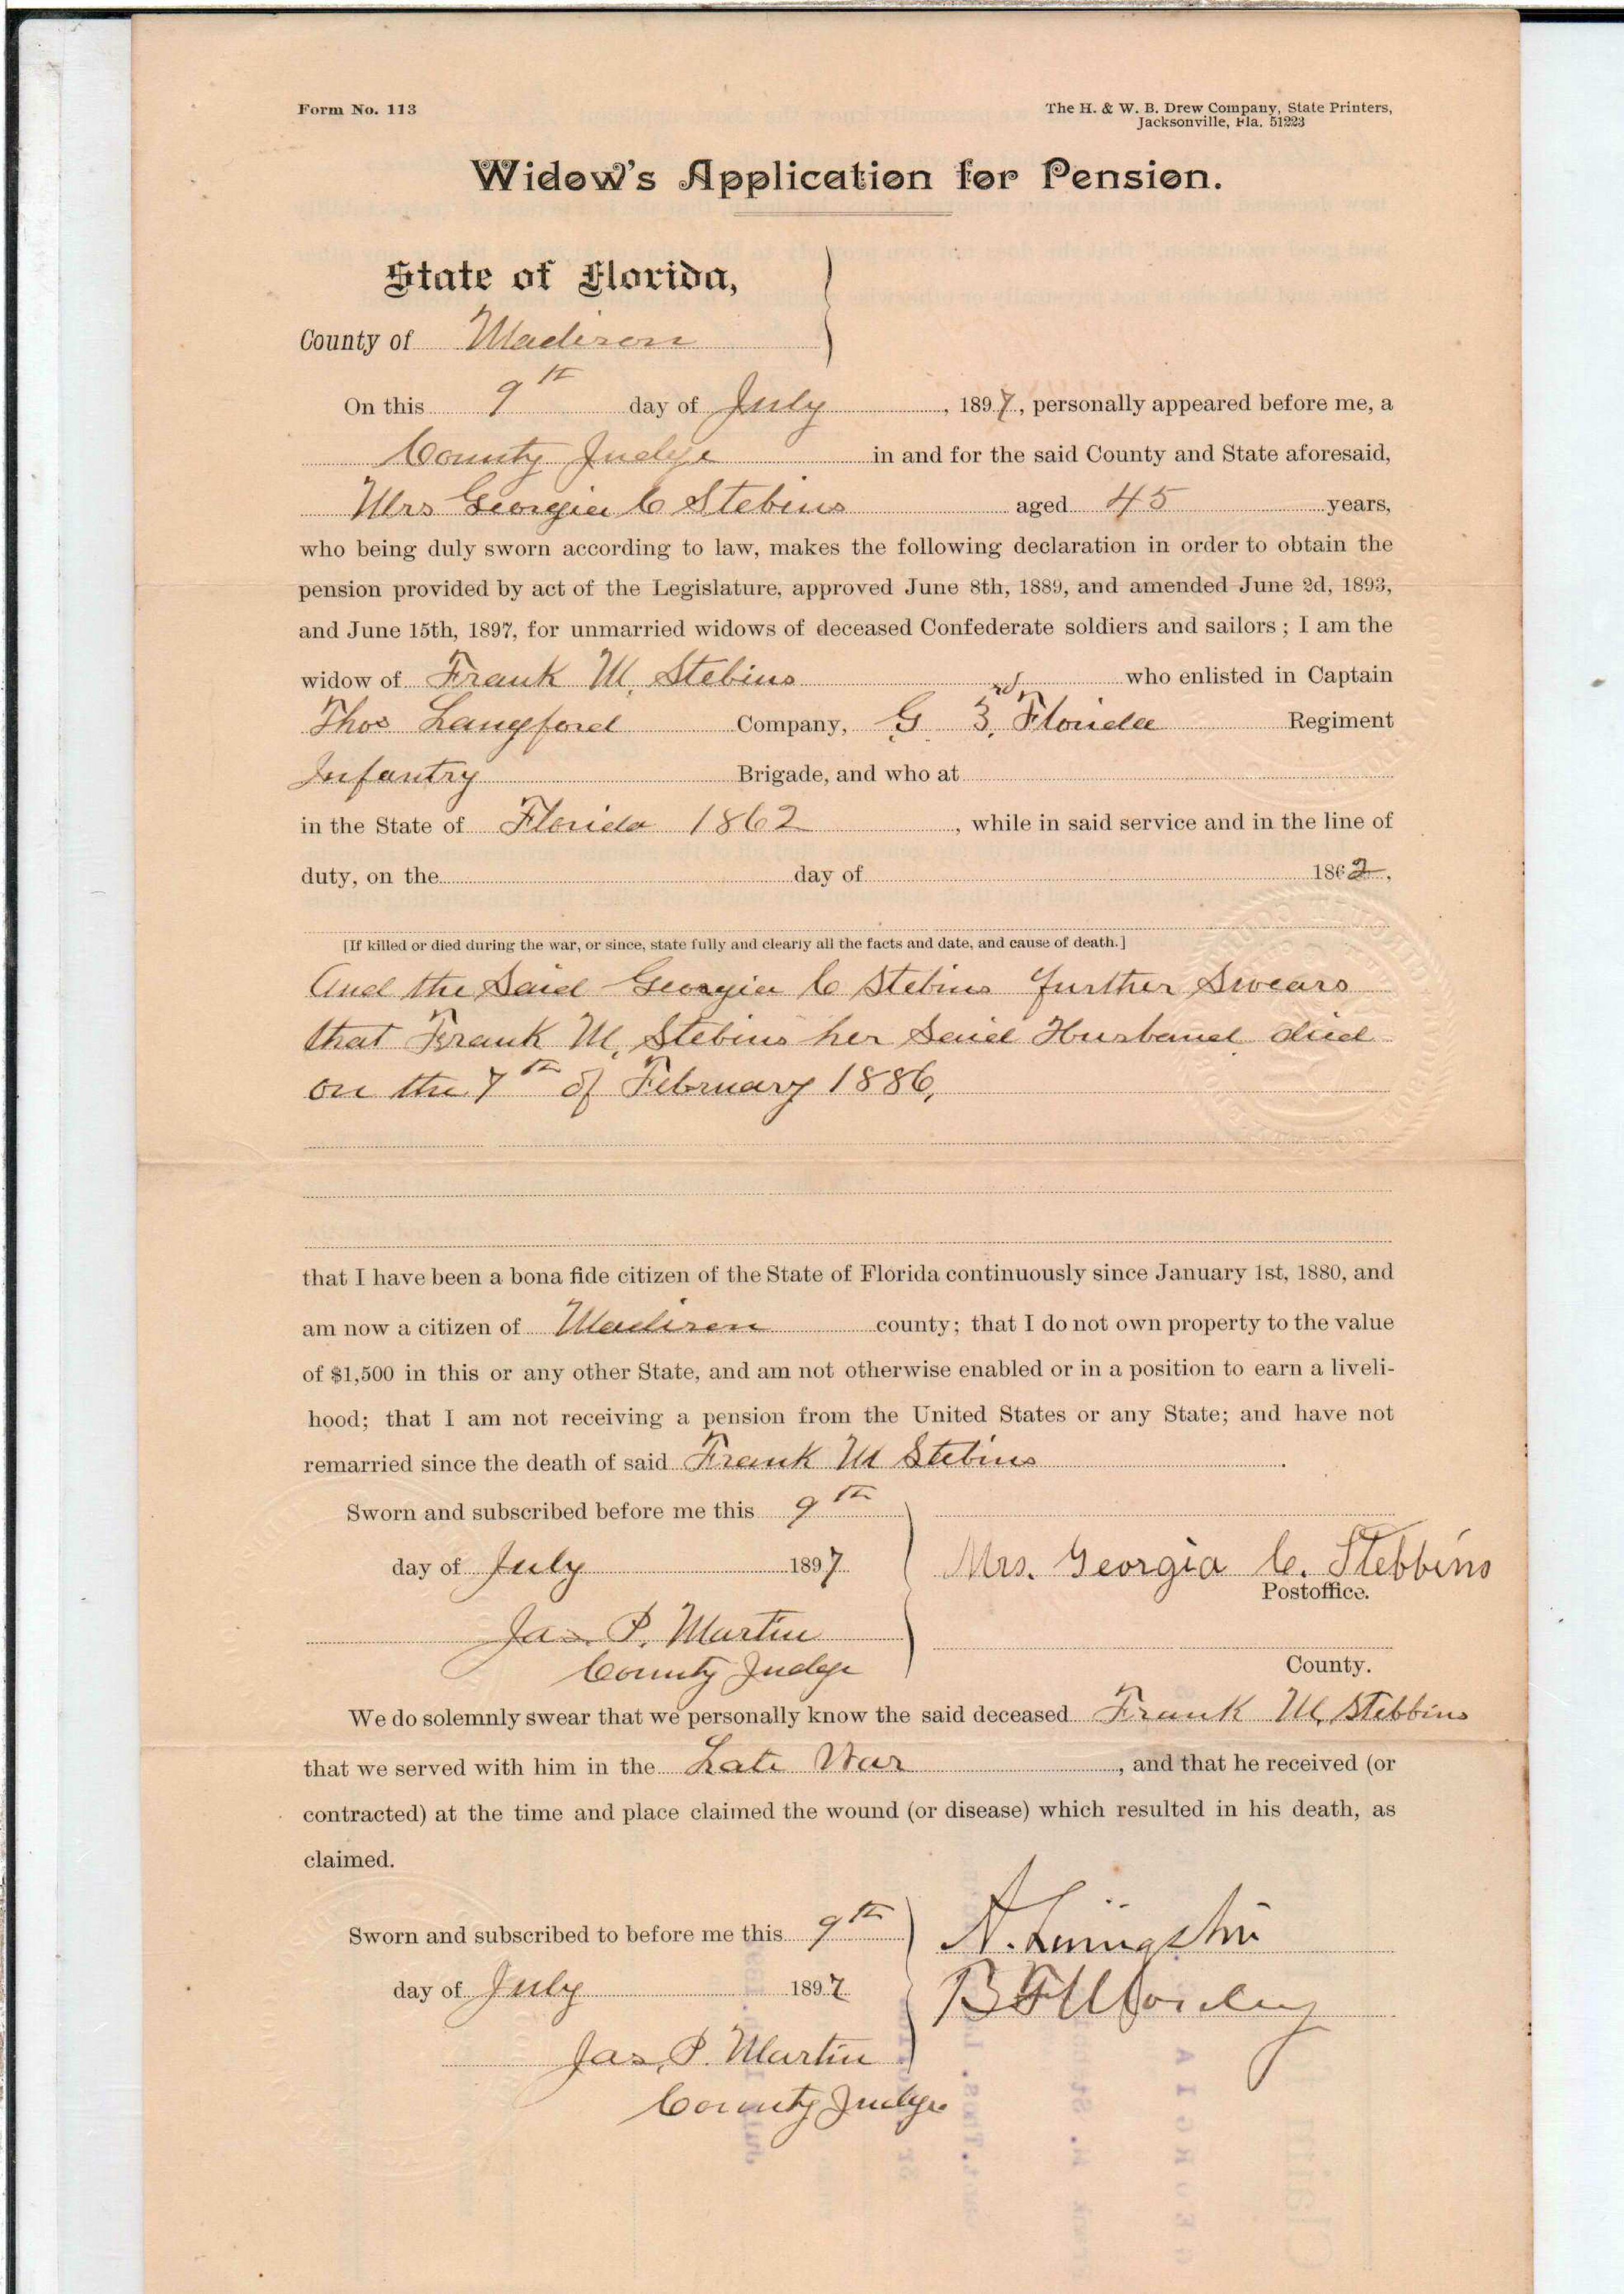 Form No. 113
The H. & W. B. Drew Company, State Printers,
Jacksonville, Fla. 51223
Widow's Application for Pension.
State of Florida,
County of Madison
On this 9th day of July, 1897, personally appeared before me, a
County Judge in and for the said County and State aforesaid,
Mrs Georgia C Stebins aged 45 years,
who being duly sworn according to law, makes the following declaration in order to obtain the
pension provided by act of the Legislature, approved June 8th, 1889, and amended June 2d, 1893,
and June 15th, 1897, for unmarried widows of deceased Confederate soldiers and sailors; I am the
widow of Frank M. Stebins who enlisted in Captain
Thos Langford Company, G 3rd Florida Regiment
Infantry Brigade, and who at
in the State of Florida 1862, while in said service and in the line of
duty, on the day of 1862,
[If killed or died during the war, or since, state fully and clearly all the facts and date, and cause of death.]
And the Said Georgia C Stebins further Swears
that Frank M. Stebins her Said Husband died
on the 7th of February 1886,
that I have been a bona fide citizen of the State of Florida continuously since January 1st, 1880, and
am now a citizen of Madison county; that I do not own property to the value
of $1,500 in this or any other State, and am not otherwise enabled or in a position to earn a liveli-
hood; that I am not receiving a pension from the United States or any State; and have not
remarried since the death of said Frank M Stebins.
Sworn and subscribed before me this 9th
day of July 1897
Mrs. Georgia C. Stebbins
Postoffice.
Jas. P. Martin
County Judge
County.
We do solemnly swear that we personally know the said deceased Frank M. Stebbins
that we served with him in the Late War, and that he received (or
contracted) at the time and place claimed the wound (or disease) which resulted in his death, as
claimed.
Sworn and subscribed to before me this 9th
N. Livingston
day of July 1897
B F
Jas. P. Martin
County Judge